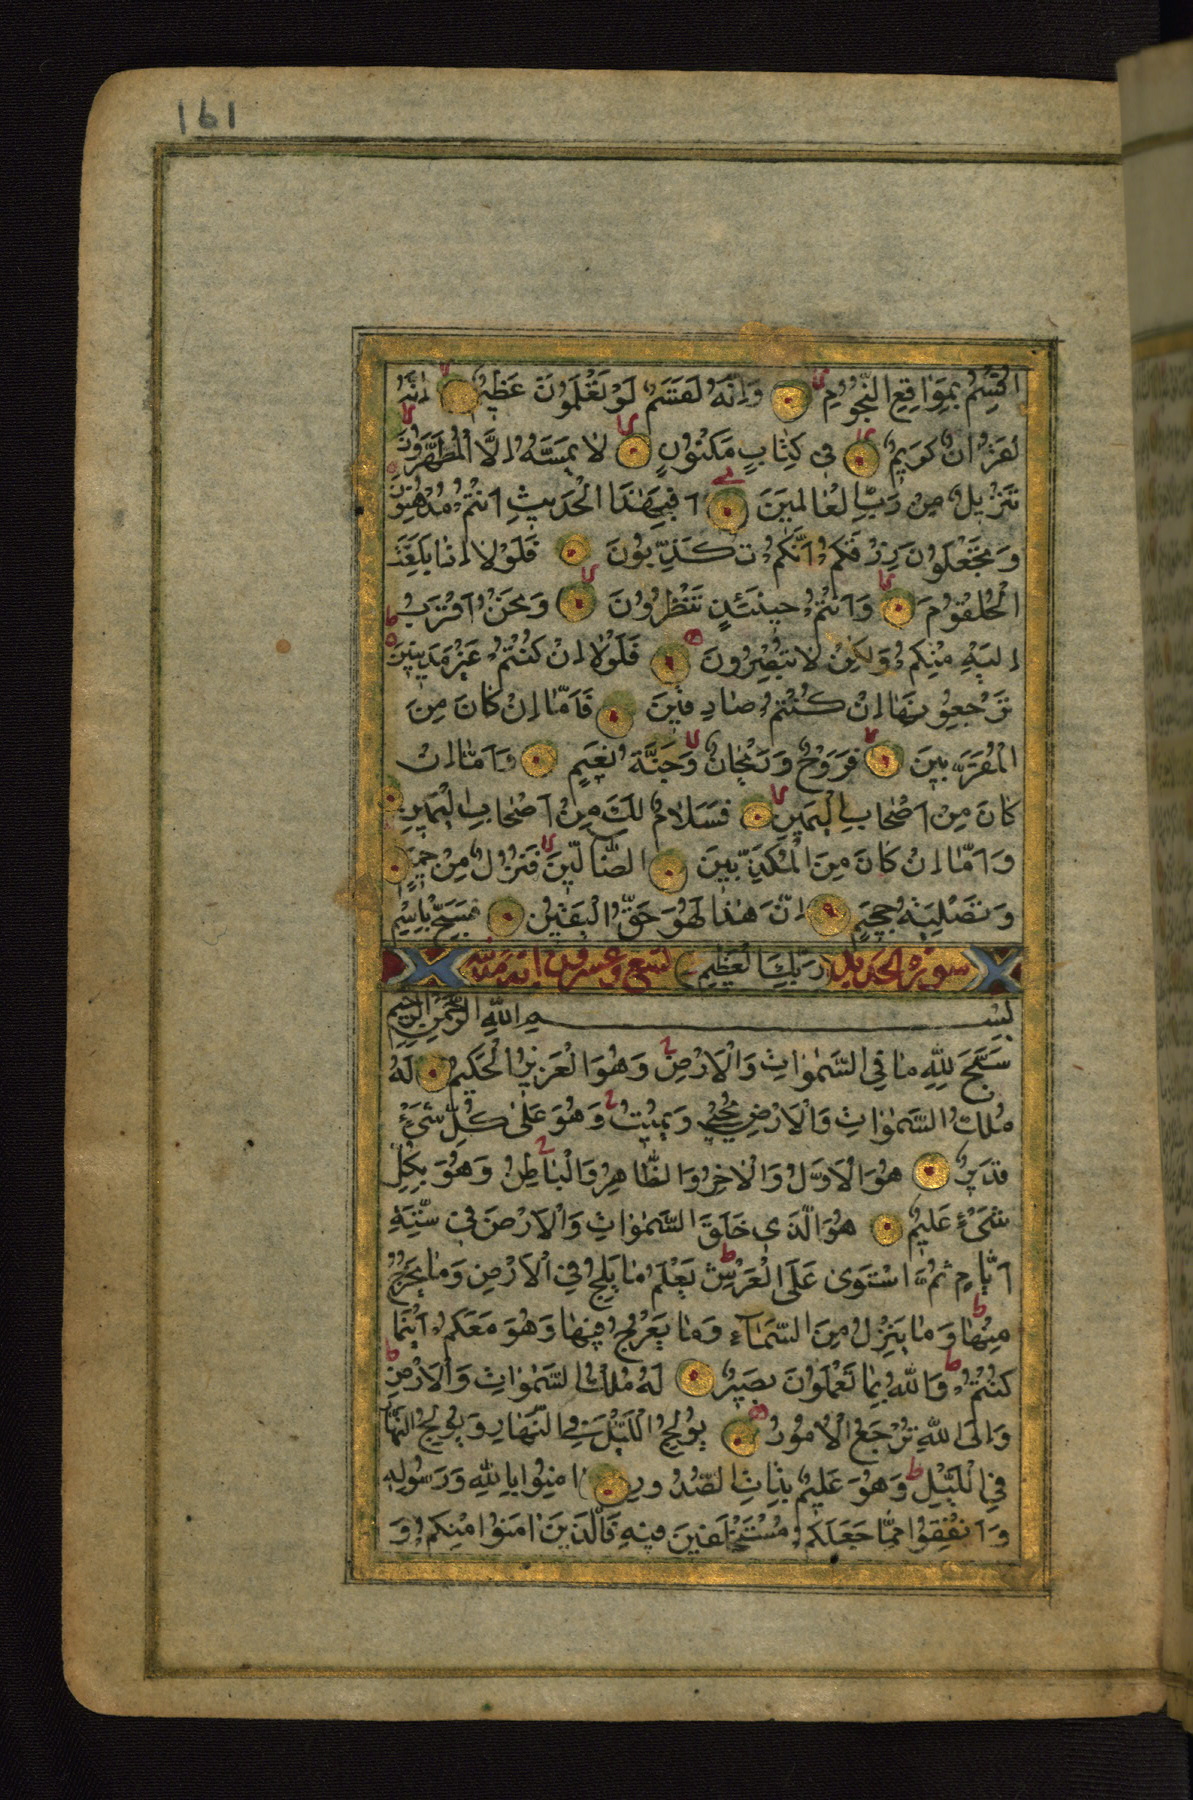 161
اُقْسِمُ بِمَوَاقِعِ النُّجُومِ وَاِنَّهُ لَقَسَمٌ لَوْ تَعْلَمُونَ عَظِيمٌ اِنَّهُ
لَقُرْاٰنٌ كَرِيمٌ فِى كِتَابٍ مَكْنُونٍ لَا يَمَسُّهُ اِلَّا الْمُطَهَّرُونَ
تَنْزِيلٌ مِنْ رَبِّ الْعَالَمِينَ اَفَبِهٰذَا الْحَدِيثِ اَنْتُمْ مُدْهِنُونَ
وَتَجْعَلُونَ رِزْقَكُمْ اَنَّكُمْ تُكَذِّبُونَ فَلَوْلَا اِذَا بَلَغَتِ
الْحُلْقُومَ وَاَنْتُمْ حِينَئِذٍ تَنْظُرُونَ وَنَحْنُ اَقْرَبُ
اِلَيْهِ مِنْكُمْ وَلٰكِنْ لَا تُبْصِرُونَ فَلَوْلَا اِنْ كُنْتُمْ غَيْرَ مَدِينِينَ
تَرْجِعُونَهَا اِنْ كُنْتُمْ صَادِقِينَ فَاَمَّا اِنْ كَانَ مِنَ
الْمُقَرَّبِينَ فَرَوْحٌ وَرَيْحَانٌ وَجَنَّةُ نَعِيمٍ وَاَمَّا اِنْ
كَانَ مِنْ اَصْحَابِ الْيَمِينِ فَسَلَامٌ لَكَ مِنْ اَصْحَابِ الْيَمِينِ
وَاَمَّا اِنْ كَانَ مِنَ الْمُكَذِّبِينَ الضَّالِّينَ فَنُزُلٌ مِنْ حَمِيمٍ
وَتَصْلِيَةُ جَحِيمٍ اِنَّ هٰذَا لَهُوَ حَقُّ الْيَقِينِ فَسَبِّحْ بِاسْمِ
سورة الحديد رَبِّكَ الْعَظِيمِ تسع وعشرون اية مدنية
بِسْمِ اللهِ الرَّحْمٰنِ الرَّحِيمِ
سَبَّحَ لِلّٰهِ مَا فِى السَّمٰوَاتِ وَالْاَرْضِ وَهُوَ الْعَزِيزُ الْحَكِيمُ لَهُ
مُلْكُ السَّمٰوَاتِ وَالْاَرْضِ يُحْيِى وَيُمِيتُ وَهُوَ عَلٰى كُلِّ شَىْءٍ
قَدِيرٌ هُوَ الْاَوَّلُ وَالْاٰخِرُ وَالظَّاهِرُ وَالْبَاطِنُ وَهُوَ بِكُلِّ
شَىْءٍ عَلِيمٌ هُوَ الَّذِى خَلَقَ السَّمٰوَاتِ وَالْاَرْضَ فِى سِتَّةِ
اَيَّامٍ ثُمَّ اسْتَوٰى عَلَى الْعَرْشِ يَعْلَمُ مَا يَلِجُ فِى الْاَرْضِ وَمَا يَخْرُجُ
مِنْهَا وَمَا يَنْزِلُ مِنَ السَّمَآءِ وَمَا يَعْرُجُ فِيهَا وَهُوَ مَعَكُمْ اَيْنَمَا
كُنْتُمْ وَاللهُ بِمَا تَعْمَلُونَ بَصِيرٌ لَهُ مُلْكُ السَّمٰوَاتِ وَالْاَرْضِ
وَاِلَى اللهِ تُرْجَعُ الْاُمُورُ يُولِجُ اللَّيْلَ فِى النَّهَارِ وَيُولِجُ النَّهَارَ
فِى اللَّيْلِ وَهُوَ عَلِيمٌ بِذَاتِ الصُّدُورِ اٰمِنُوا بِاللهِ وَرَسُولِهِ
وَاَنْفِقُوا مِمَّا جَعَلَكُمْ مُسْتَخْلَفِينَ فِيهِ فَالَّذِينَ اٰمَنُوا مِنْكُمْ وَ